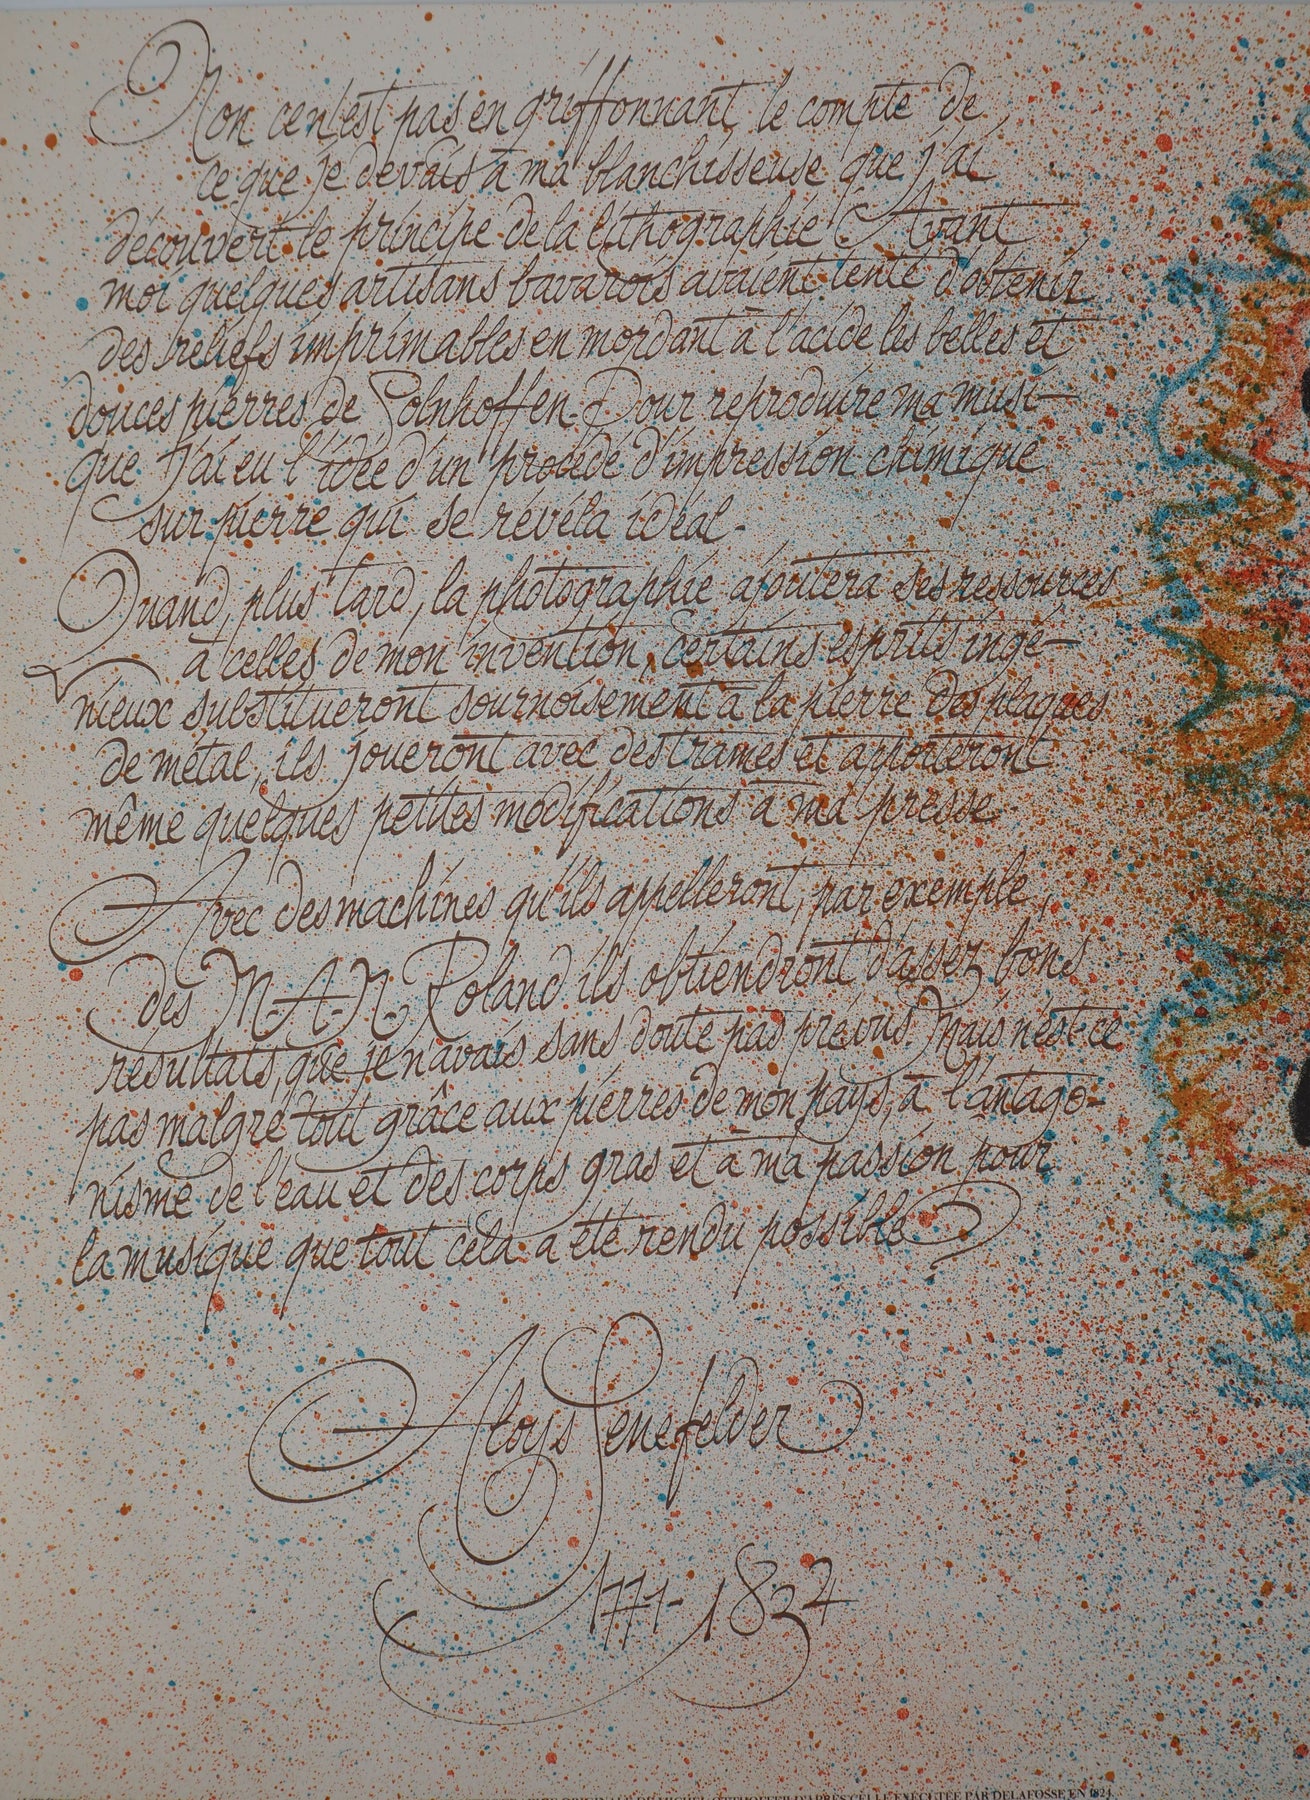 Non ce n'est pas en griffonnant le compte de
ce que je devais à ma blanchisseuse que j'ai
découvert le principe de la lithographie ! Avant
moi quelques artisans bavarois avaient tenté d'obtenir
des reliefs imprimables en mordant à l'acide les belles et
douces pierres de Solnhoffen. Pour reproduire ma musi-
que j'ai eu l'idée d'un procédé d'impression chimique
sur pierre qui se révéla idéal.
Quand, plus tard, la photographie ajoutera ses ressources
à celles de mon invention, certains esprits ingé-
nieux substitueront sournoisement à la pierre des plaques
de métal, ils joueront avec des trames et apporteront
même quelques petites modifications à ma presse.
Avec des machines qu'ils appelleront, par exemple,
des M.A.N. Roland ils obtiendront d'assez bons
résultats, que je n'avais sans doute pas prévus. Mais n'est-ce
pas malgré tout grâce aux pierres de mon pays, à l'antago-
nisme de l'eau et des corps gras et à ma passion pour
la musique que tout cela a été rendu possible ?
Aloys Senefelder
1771-1834
ORIGINALE DE MICHEL D'APRÈS CELLE EXÉCUTÉE PAR DELAFOSSE EN 1824